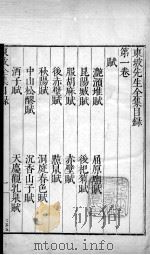 東坡先生全集目錄
第一卷
賦
灩澦堆賦
屈原廟賦
昆陽城賦
後杞菊賦
服胡麻賦
赤壁賦
後赤壁賦
黠鼠賦
秋陽賦
洞庭春色賦
中山松醪賦
沉香山子賦
酒子賦
天慶觀乳泉賦